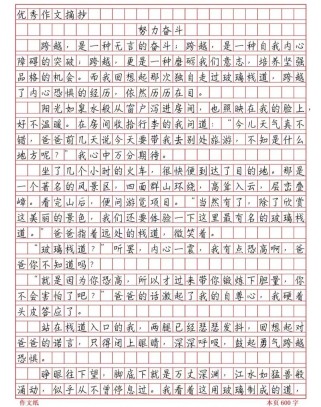 优秀作文摘抄
努力奋斗
跨越，是一种无言的奋斗；跨越，是一种自我内心
障碍的突破；跨越，更是一种磨砺我们意志，培养坚强
品格的机会。而我回想起那次独自走过玻璃栈道，跨越
了内心恐惧的经历，依然历历在目。
阳光如泉水般从窗户泻进房间，也照映在我的脸上，
好不温暖。在房间收拾行李的我问道：“今儿天气真不
错，爸爸前几天说今天要带我去别处旅游，不知是什么
地方呢？”我心中万分期待。
坐了几个小时的火车，很快便到达了目的地。那是
一个著名的风景区，四面群山环绕，高耸入云，层峦叠
嶂。看完山后，便问游览项目。“当然有了，除了欣赏
这美丽的景色，我们还要体验一下这里最有名的玻璃栈
道。”爸爸指着远处的栈道，微笑着。
“玻璃栈道？”听罢，内心一震，我有点恐高啊，爸
爸你不知道吗？
“就是因为你恐高，所以才过来带你锻炼下胆量，你
不会害怕了吧？”爸爸的话激起了我的自尊心，我硬着
头皮答应了。
站在栈道入口的我，两腿已经瑟瑟发抖，回想起对
爸爸的诺言，只得闭上眼睛，深深呼吸，鼓起勇气跨越
恐惧。
睁眼往下望，脚底下就是万丈深渊，江水如猛兽般
涌动，似乎从不曾停息过。我看着这用玻璃制成的道，
作文纸
本页 600 字